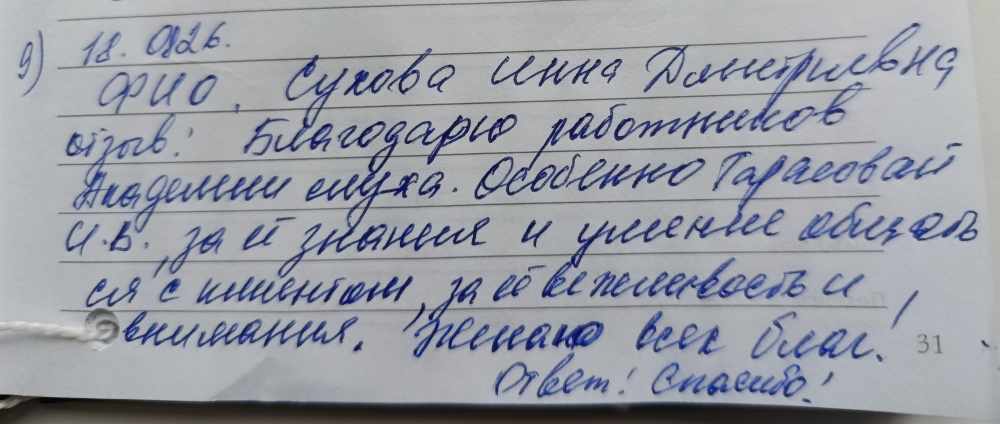 9) 18.0826.
ФИО, Сухова Инна Дмитриевна
отзыв: Благодарю работников
Академии слуха. Особенно Тарасовай
И.В., за её знания и умение общать
ся с клиентом, за её вежливость и
внимания. Желаю всех благ!
31
Ответ: Спасибо!